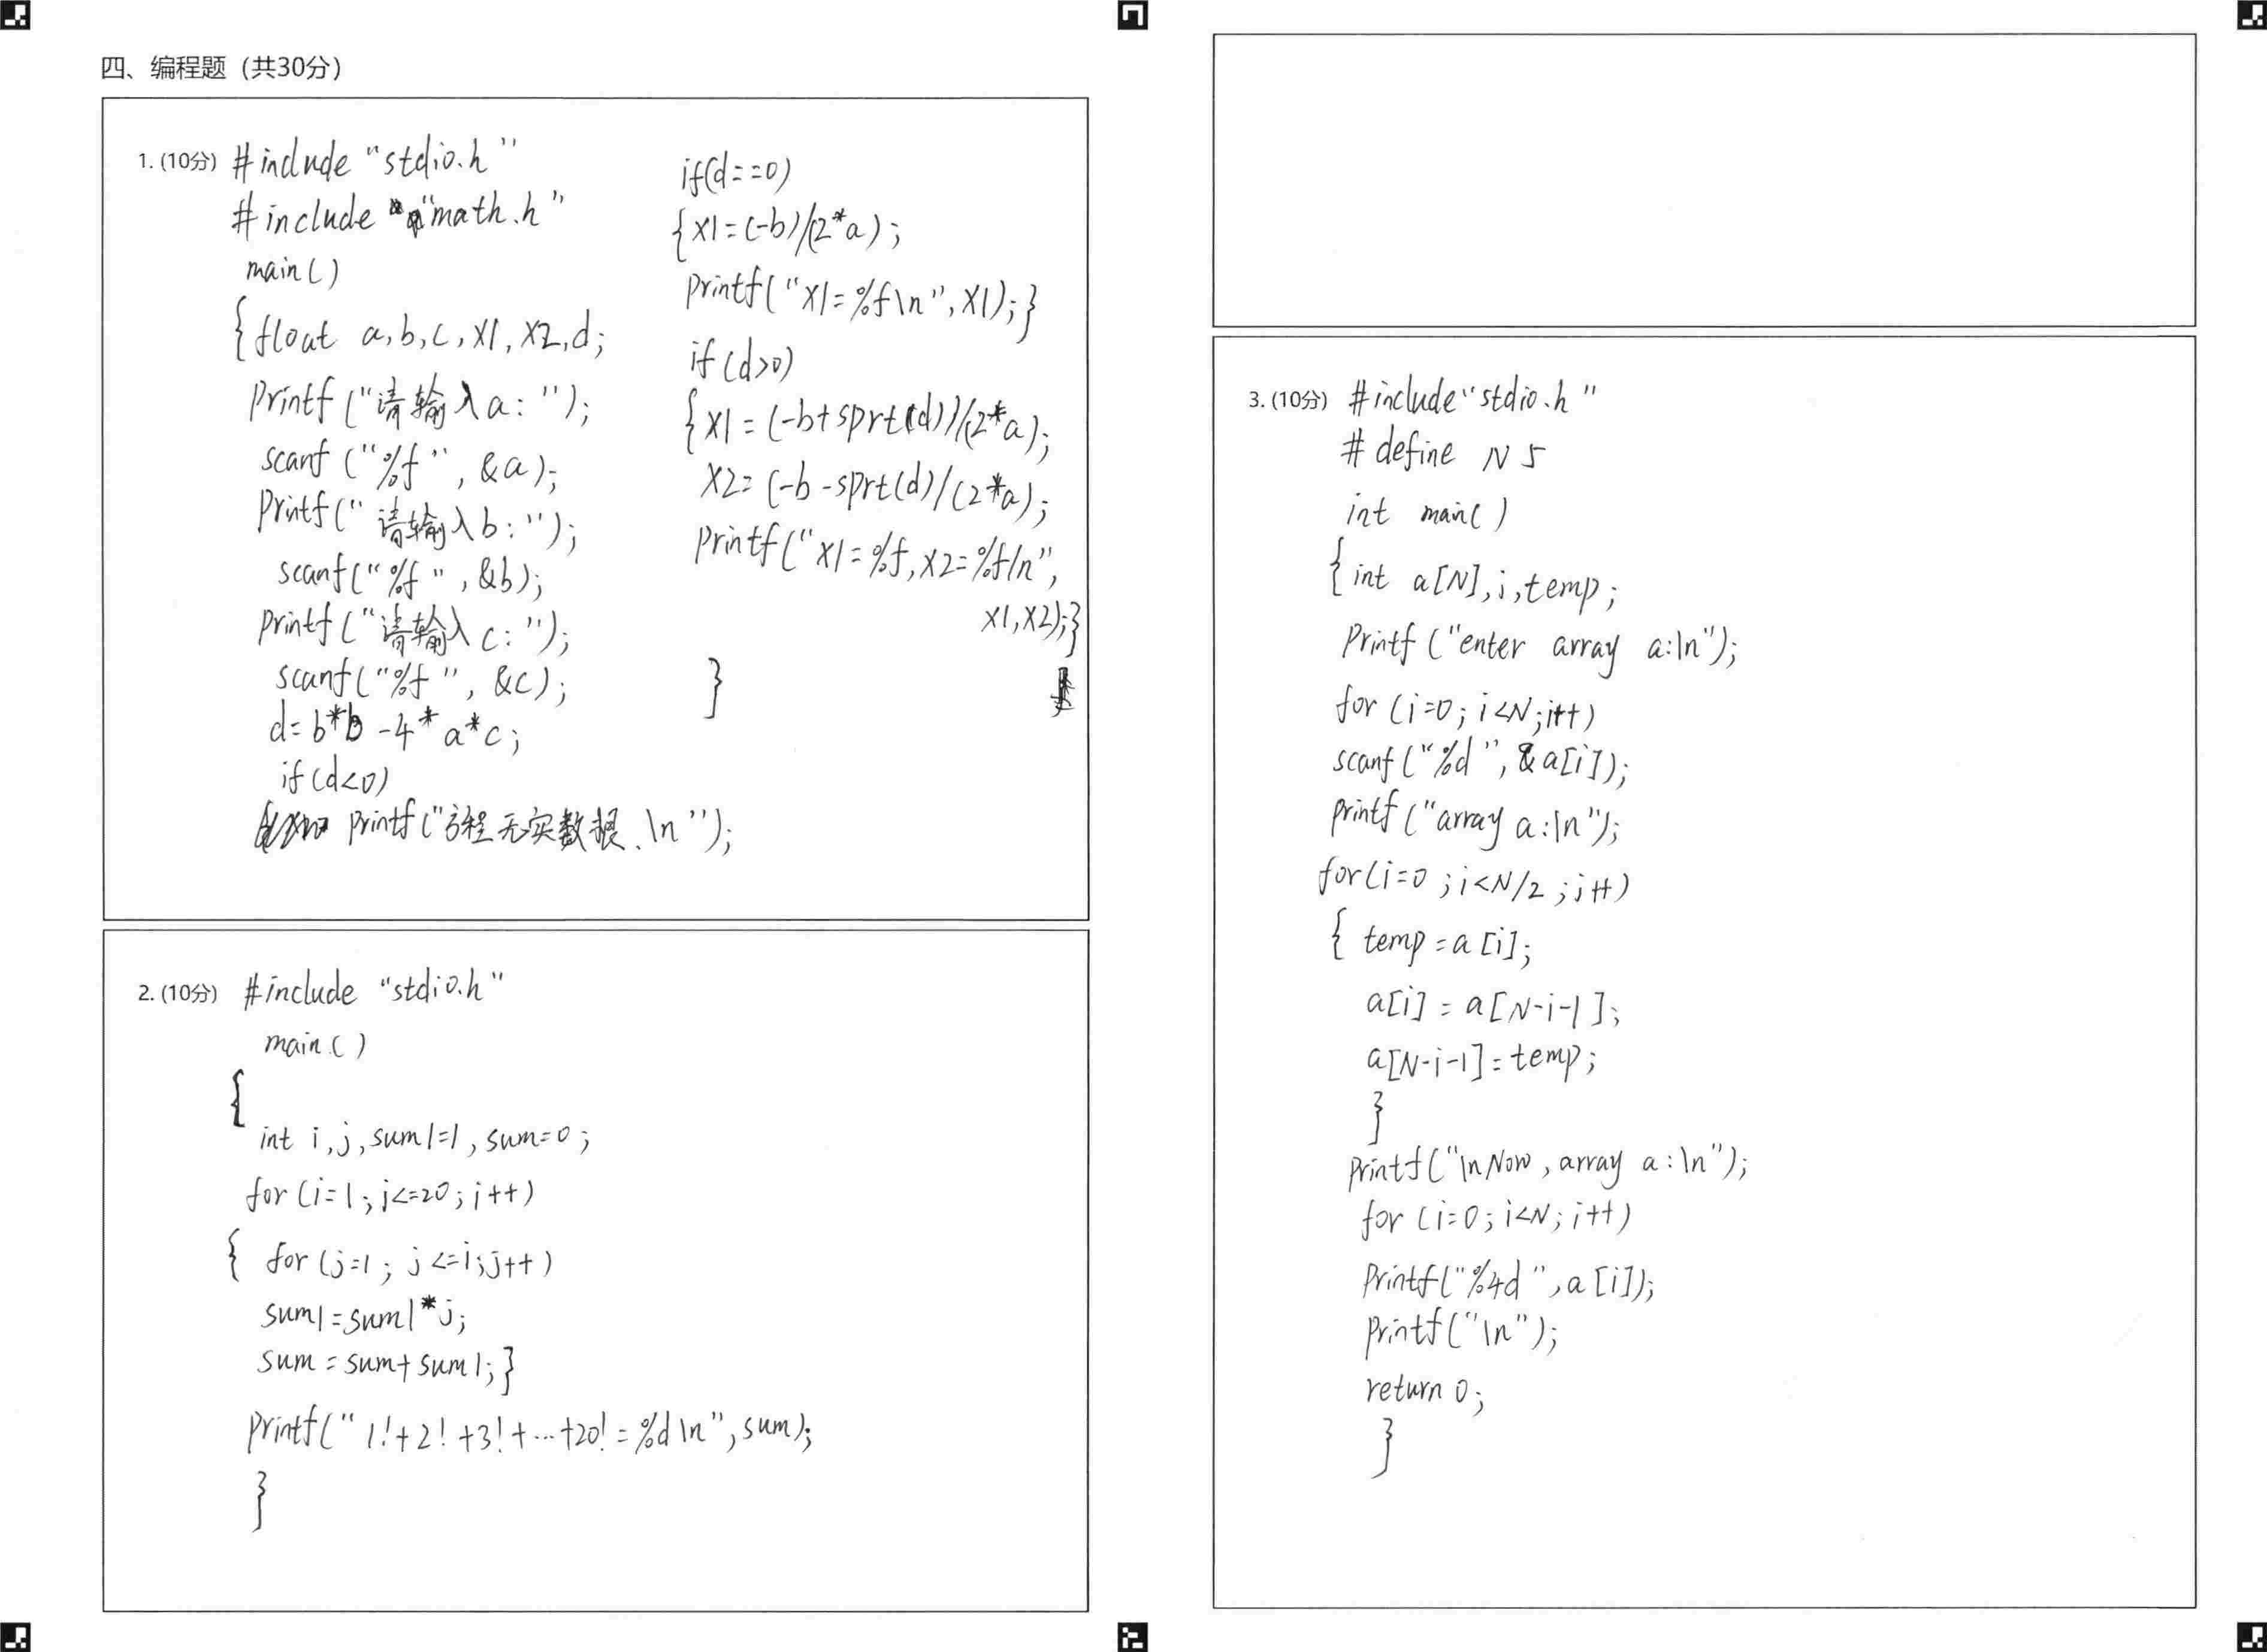 四、编程题（共30分）
1. (10分) #include "stdio.h"
#include "math.h"
main()
{float a,b,c,x1,x2,d;
printf("请输入a:");
scanf("%f",&a);
printf("请输入b:");
scanf("%f",&b);
printf("请输入c:");
scanf("%f",&c);
d=b*b-4*a*c;
if(d<0)
printf("方程无实数根.\n");
if(d==0)
{x1=(-b)/(2*a);
printf("x1=%f\n",x1);}
if(d>0)
{x1=(-b+sprt(d))/(2*a);
x2=(-b-sprt(d)/(2*a);
printf("x1=%f,x2=%f/n",
x1,x2);}
}
2. (10分) #include "stdio.h"
main()
{
int i,j,sum1=1,sum=0;
for(i=1;i<=20;i++)
{ for(j=1;j<=i;j++)
sum1=sum1*j;
sum=sum+sum1;}
printf("1!+2!+3!+…+20!=%d\n",sum);
}
3. (10分) #include"stdio.h"
#define N 5
int main()
{int a[N],i,temp;
printf("enter array a:\n");
for(i=0;i<N;i++)
scanf("%d",&a[i]);
printf("array a:\n");
for(i=0;i<N/2;i++)
{ temp=a[i];
a[i]=a[N-i-1];
a[N-i-1]=temp;
}
printf("\nNow,array a:\n");
for(i=0;i<N;i++)
printf("%4d",a[i]);
printf("\n");
return 0;
}